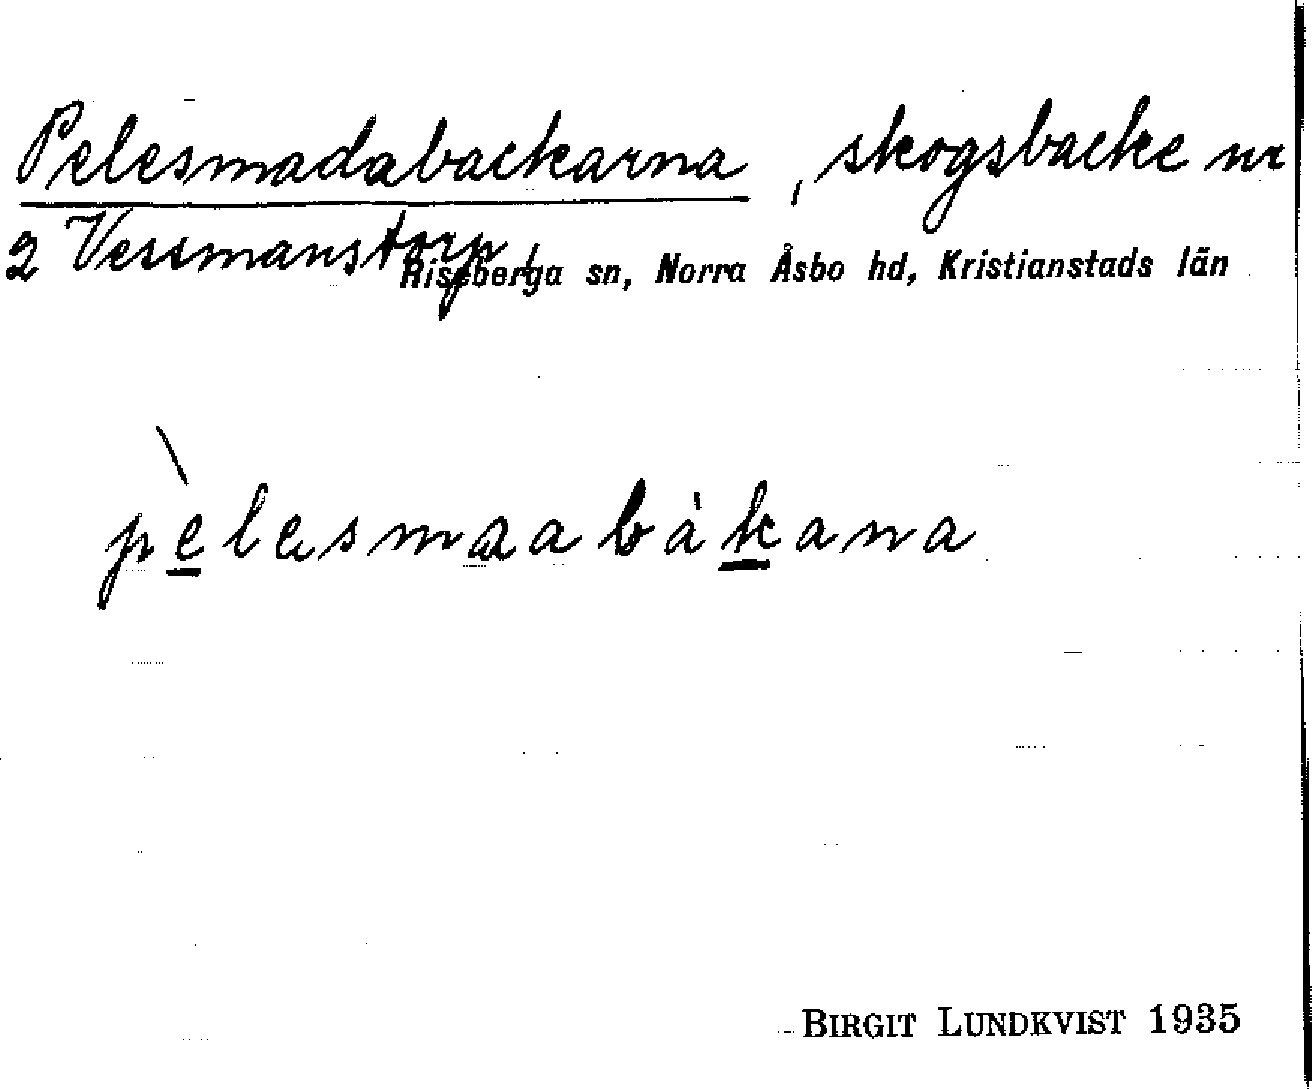 Pelesmadabackarna, skogsbacke nr
2 Vessmanstorp,
Riseberga sn, Norra Åsbo hd, Kristianstads län
pèlesmaabàkana
BIRGIT LUNDKVIST 1935